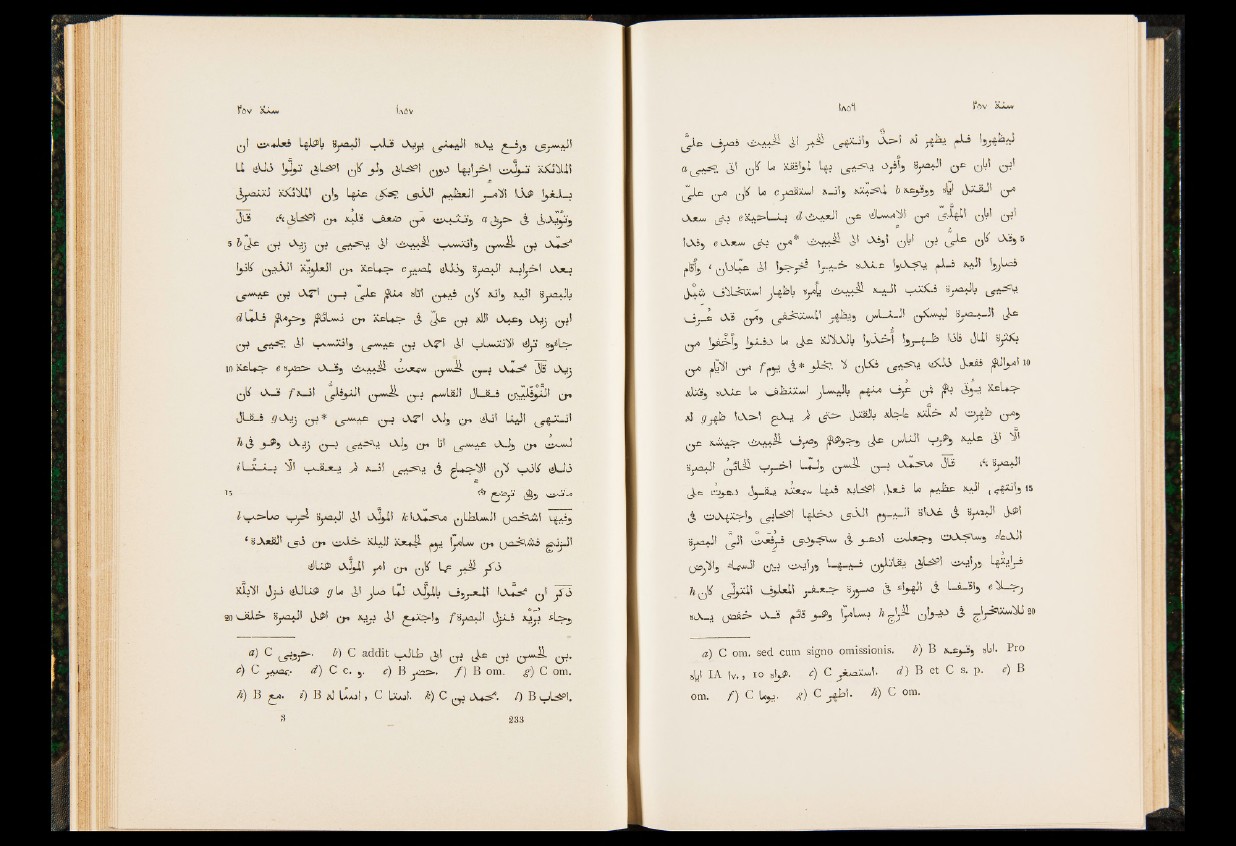 سنة ٢٥٧ ١٨٥٦
ليظهروا فلم يظهر له احدٌ وانتهى الخبر الى الخبيث فصرف علىَّ
ابن ابان عن البصرة وأفرد يحيى بها لموافقة ما كان اتى يحيى a
من القتل ايّاه ووقوعه b بمحبّته وانه استقصر c ما كان من علىّ
ابن ابان المهلّبىّ من الامساك عن العيث d بناحية e بنى سعد
5 وقد كان علىّ بن ابان اوفد الى الخبيث *من بنى سعد e وفدا
فصاروا اليه فلم يجدوا عنده خيرا فخرجوا الى عبّادان، وأقام
يحيى بالبصرة فكتب اليه الخبيث يأمره باظهار استخلاف شبل
على البصرة ليسكن الناس ويظهر المستخفى ومن قد عرف
بكثرة المال فاذا ظهروا أُخذوا بالدلالة على ما دفنوا وأخفوا من
10 اموالهم ففعل ذلك يحيى فكان لا يخلو *فى يوم f من الايّام من
جماعة يُؤتى بهم فمن عرف منهم باليسار استنظف ما عنده وقتله
ومن ظهرت له خلّته عاجله بالقتل حتى لم يدع احدا ظهر g له
الّا اتى عليه وهرب الناس على وجوههم وصرف الخبيث جيشه عن
البصرة، قال محمّد بن الحسن ولمّا اخرب الخائن البصرة
15 وانتهى اليه عظيم ما فعل اصحابه فيها سمعتُه يقول دعوت على
اهل البصرة فى غداة اليوم الذى دخلها اصحابى واجتهدت فى
الدعاء وسجدت وجعلت ادعو فى سجودى فرُفعت الىّ البصرة
فرأيتُها ورأيت اصحابى يقاتلون فيها ورأيت بين السماء والارض
رجلا e واقفا فى الهواء فى صورة جعفر المعلوف المتولّى كان h
20 للاستخراج فى ديوان الخراج h بسامرّا وهو قائم قد خفض يده
a) C om. sed cum signo omissionis. b) B اتاه وقوعه. Pro
اياه IA ١٧٠, 10 هواه. c) C استصغر. d) B et C s. p. e) B
om. f) C يوما. g) C اظهر. h) C om.
سنة ٢٥٧ ١٨٥٧
اليسرى ورفع يده اليمنى يريد قلب البصرة باهلها فعلمت ان
الملائكة تولّت اخرابها دون اصحابى ولو كان اصحابى تولّوا ذلك لما
بلغوا هذا الامر العظيم الذى يحكى عنها وان الملائكة لتنصرنى
وتؤيّدنى فى حربى a وتثبت من ضعف قلبه من اصحابى، قال
5 محمّد بن الحسن وانتسب الخبيث الى يحيى بن زيد بن علىّ b
بعد اخرابه البصرة وذلك لمصير c جماعة من العلويّة الذين كانوا
بالبصرة اليه وانه كان فيمن اتاه منهم علىّ بن احمد بن عيسى
ابن زيد وعبد الله بن علىّ فى جماعة من نسائهم وحرمهم فلمّا d
جاءوه ترك الانتساب الى احمد بن عيسى وانتسب الى يحيى بن
10 زيد قال محمّد بن الحسن سمعتُ الخبيث وقد حضره e جماعة
من النوفليّين فقال القاسم بن الحسن النوفلىّ انه f قد كان
انتهى الينا انك من ولد احمد بن عيسى *بن زيد g فقال
لستُ من ولد عيسى انا من ولد يحيى بن زيد وهو فى h
ذلك كاذب لانّ الاجماع فى يحيى انه لم يعقب الّا بنتا i
15 ماتت وهى ترضع،
وفيها اشخص السلطان محمّدا k المولّد الى البصرة لحرب صاحب l
الزنج فشخص من سامرّا يوم الجمعة لليلة خلت من ذى القعدة،
ذكر الخبر عما كان من امر المولّد هناك
ذكر ان محمّدا المعروف بالمولّد لمّا صار الى ما g هنالك نزل الابلّة
20 وجاء بُرَيْه فنزل البصرة f واجتمع الى بريه من اهل البصرة خلق
a) C حروبى. b) C addit بن الحسن بن على بن ابى طالب.
c) C بمصير. d) C c. و. e) B حضر. f) B om. g) C om.
h) B مع. i) B ابنتا له, C ابنتا. k) C محمد بن. l) B اصحاب.
3 233